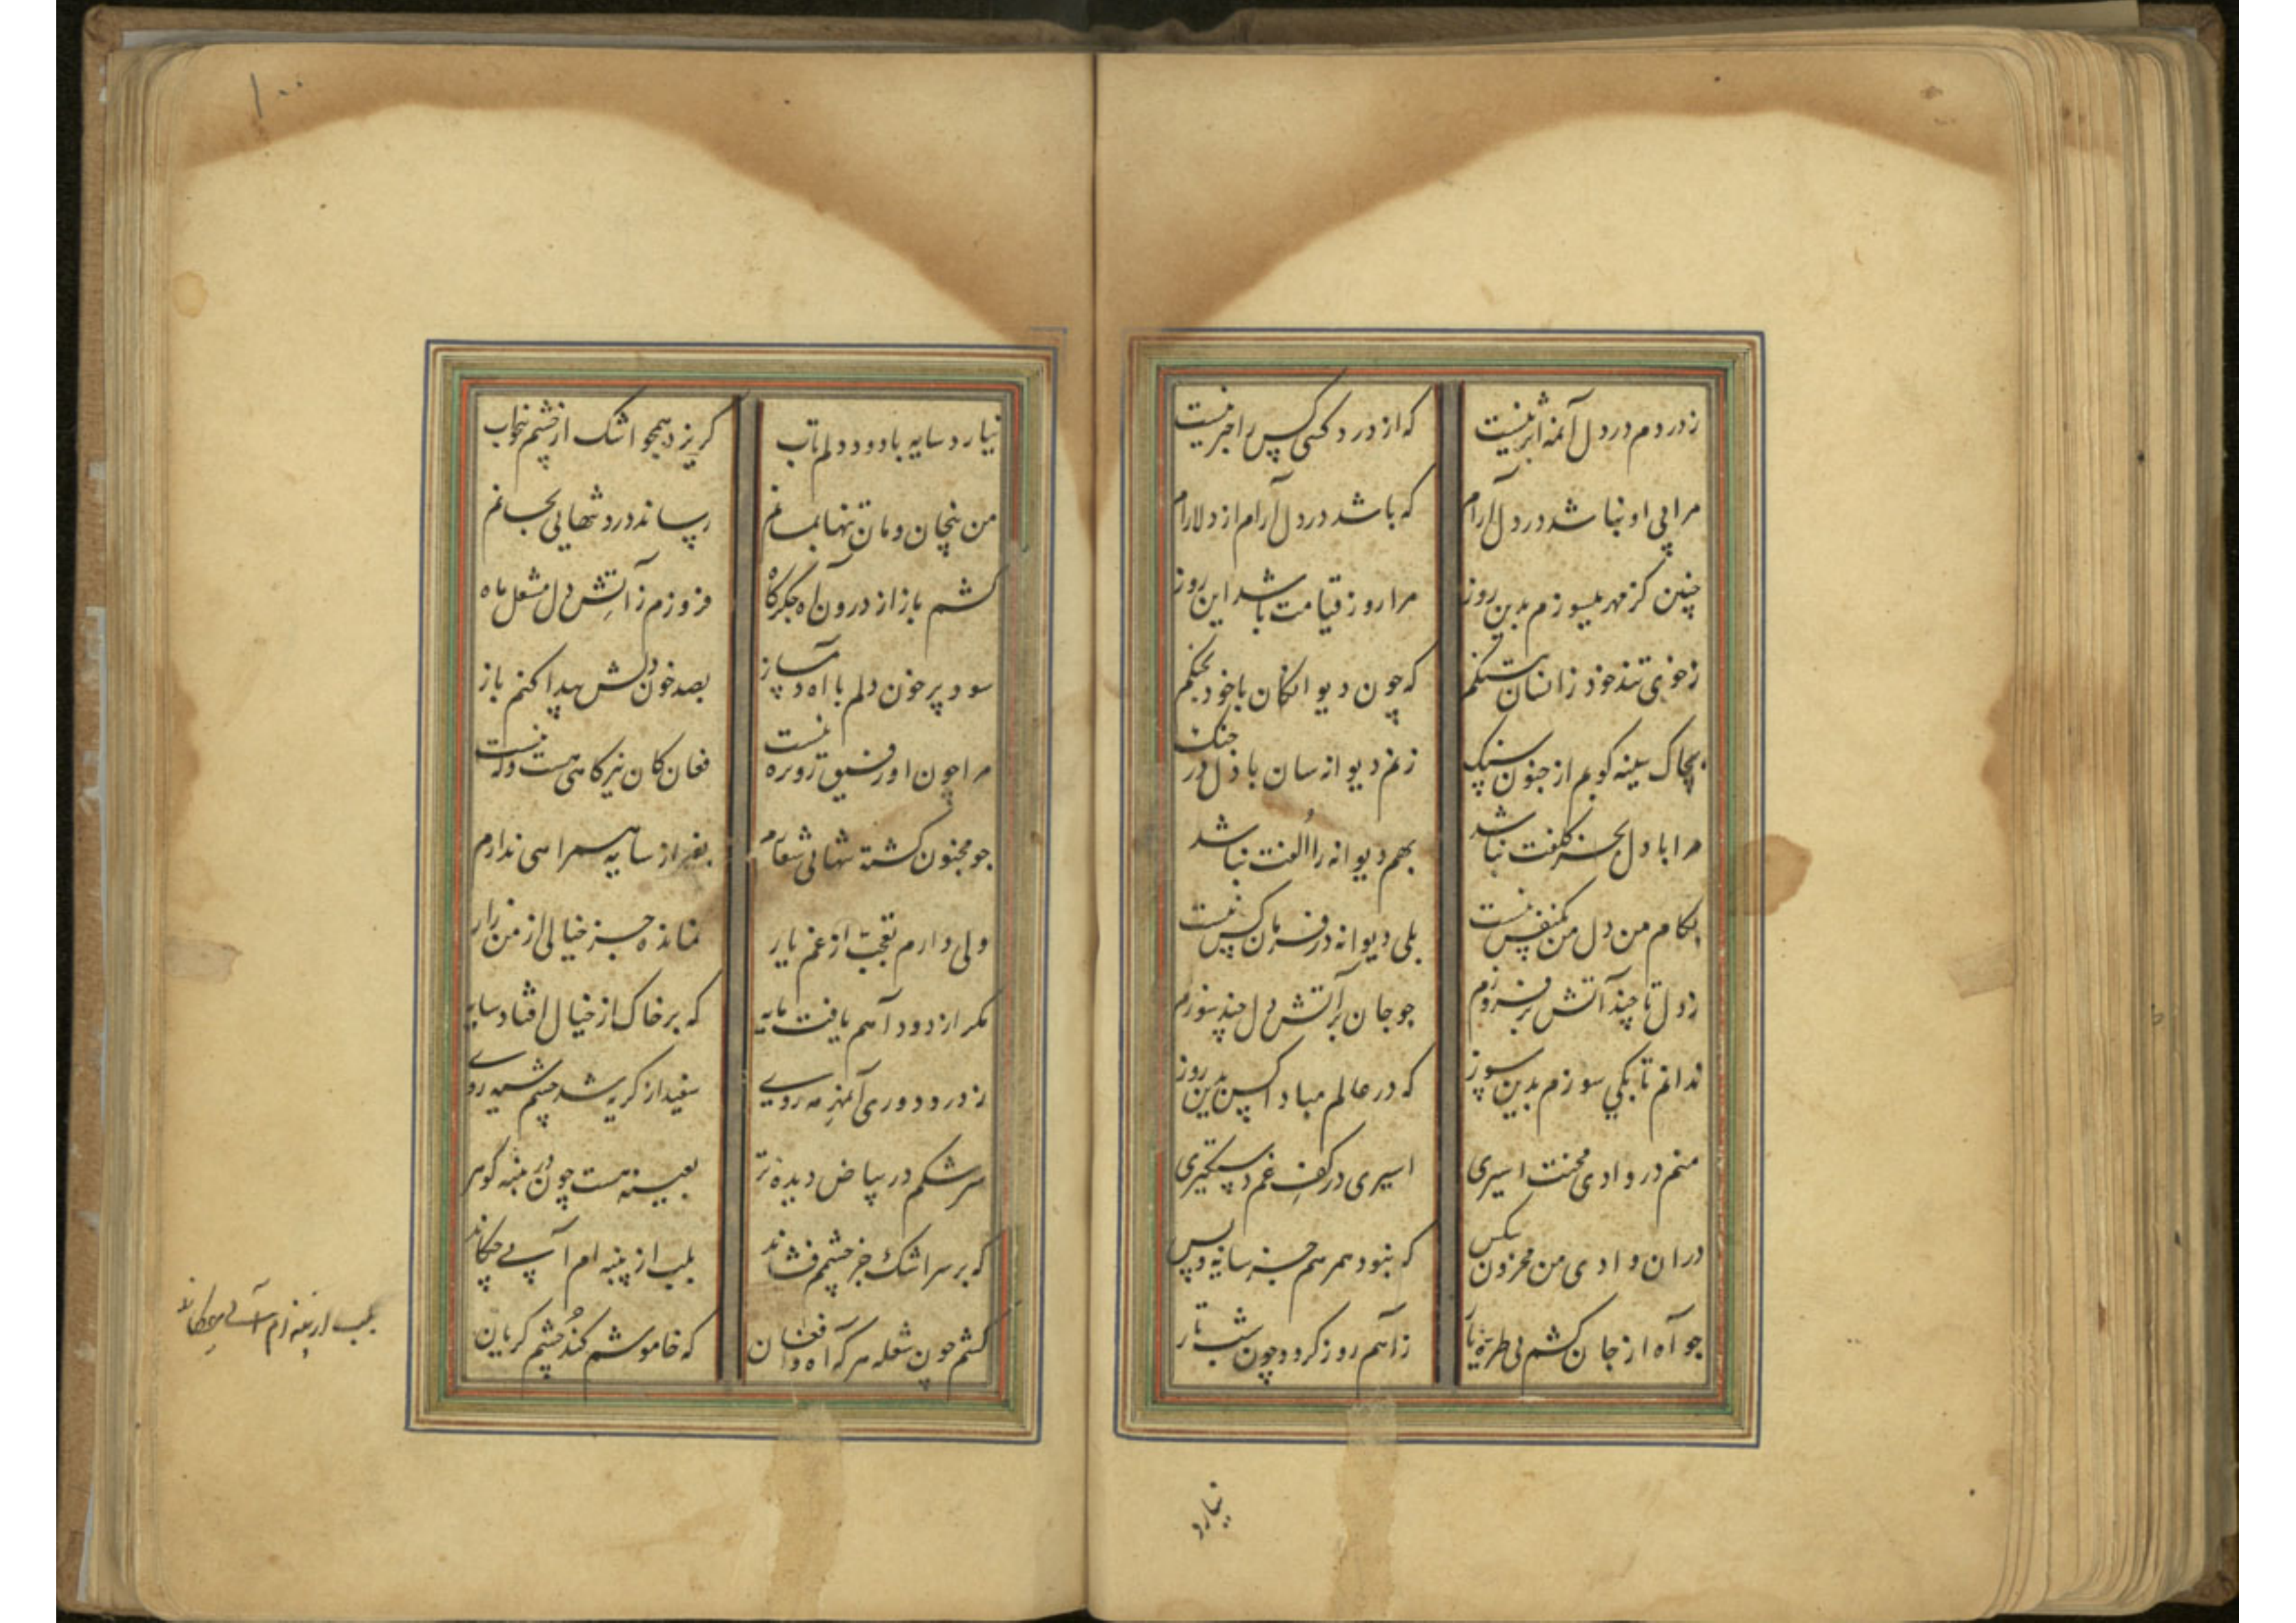 ز دردم در دل آنمه اثر نیست که از درد کسی کس را خبر نیست
مرا بی او نباشد در دل آرام که باشد در دل آرام از دلارام
چنین کز مهر میسوزم بدین روز مرا روز قیامت باشد این روز
ز خوی تند خود زانسان بتنگم که چون دیوانکان با خود بجنکم
بچاک سینه کوبم از جنون سنک زنم دیوانه سان با دل در جنک
مرا با دل بجز کلفت نباشد بهم دیوانه را الفت نباشد
بکام من دل من یکنفس نیست بلی دیوانه در فرمان کس نیست
ز دل تا چند آتش برفروزم جو جان بر آتش دل چند سوزم
ندانم تا بکی سوزم بدین سوز که در عالم مبادا کس بدین روز
منم در وادی محنت اسیری اسیری در کف غم دستکیری
دران وادی من محزون بیکس که نبود همرهم جز سایه و پس
جو آه از جان کشم بی طره یار ز آهم روز کردد چون شب تار
نیارد
۱۰۰
نیارد سایه با دود دلم تاب کریزد همجو اشک از چشم بیخواب
من بیجان و مان تنها بمانم رساند درد تنهایی بجانم
کشم باز از درون آه جکرکاه فروزم ز آتش دل مشعل ماه
بود پر خون دلم با آه دمساز بصد خون دلش پیدا کنم باز
مرا چون او رفیق روز ره نیست فغان کان نیز کاهی هست و که نیست
جو مجنون کشته تنهائی شعارم بغیر از سایه همراهی ندارم
ولی دارم تعجب از غم یار نمانده جز خیالی از من زار
مکر از دود آهم یافت مایه که بر خاک از خیال افتاد سایه
ز درد دوری آنمهر مه روی سفید از کریه شد چشم سیه روی
سرشکم در بیاض دیده تر بعینه هست چون در پنبه کوهر
که بر سر اشک جز چشمم فشاند بلب از پنبه ام آبی چکاند
کشم چون شعله هر که آه و افغان که خاموشم کند جز چشم کریان
بلب از پنبه ام آبی چکاند